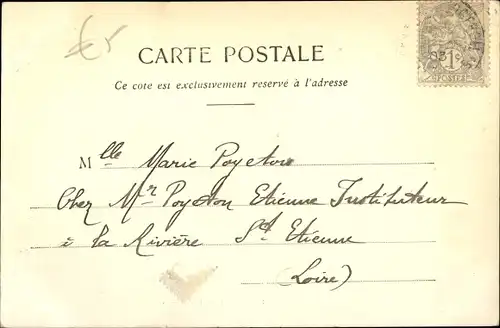 CARTE POSTALE
Ce cote est exclusivement reservé à l'adresse
Mlle Marie Poyeton
Chez Mr Poyeton Etienne Instituteur
à la Rivière St Etienne
(Loire)
1c
POSTES